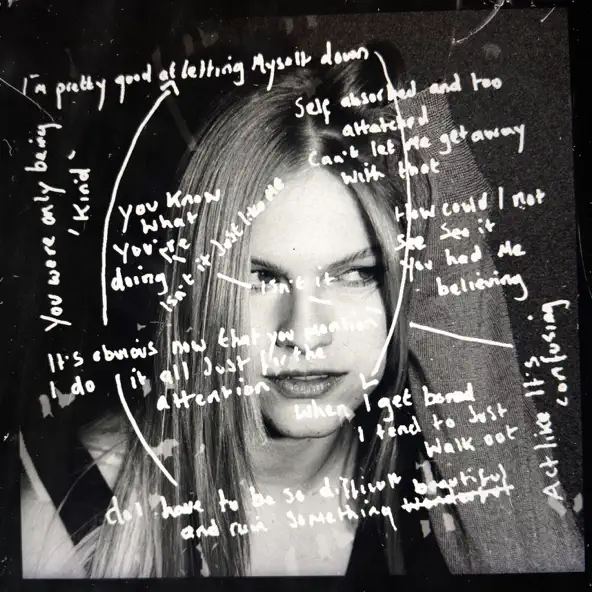 I'm pretty good at letting Myself down
Self absorbed and too
attatched
Can't let Me get away
with that
You were only being
'Kind'
You Know
What
You're
doing
isn't it Just like Me
isn't it
How could I not
See See it
You had Me
believing
It's obvious now that you mention
I do it all Just for the
attention
When I get bored
I tend to Just
Walk out
Act like It's
confusing
do I have to be so difficult beautiful
and ruin something wonderful